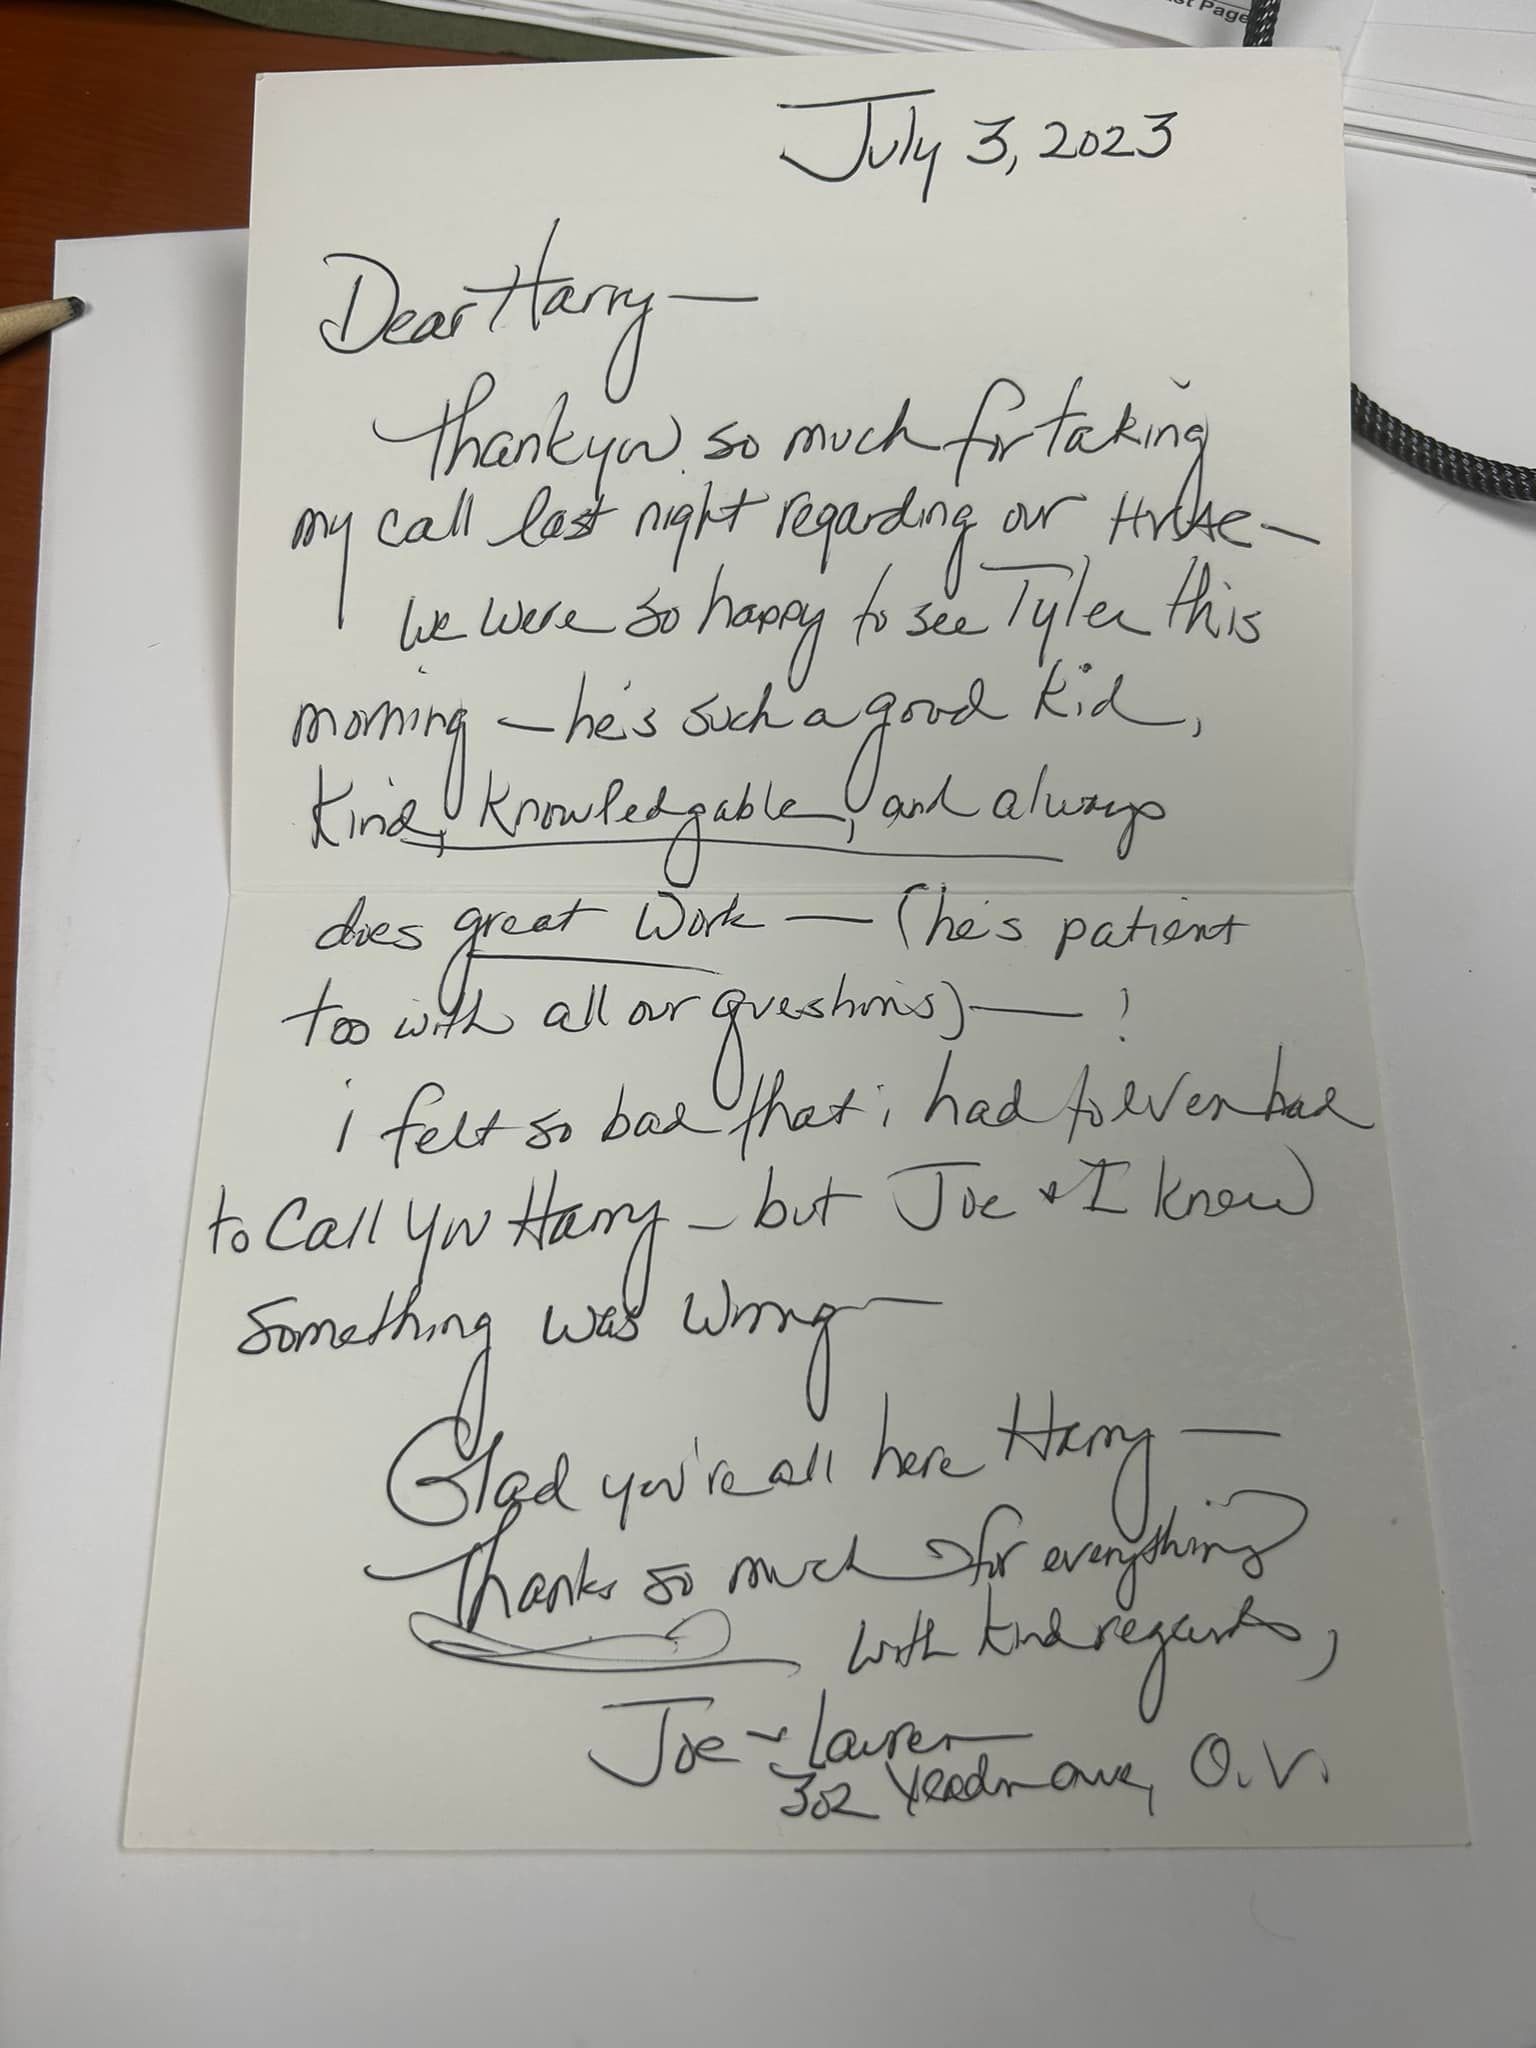 st Page
July 3, 2023
Dear Harry —
Thank you so much for taking
my call last night regarding our HVAC —
we were so happy to see Tyler this
morning — he's such a good kid,
kind, knowledgable, and always
does great work — (he's patient
too with all our questions) — !
i felt so bad that i had to even had
to call you Harry — but Joe & I knew
something was wrong —
Glad you're all here Harry —
Thanks so much for everything
with kind regards,
Joe & Lauren
302 ave, O.V.